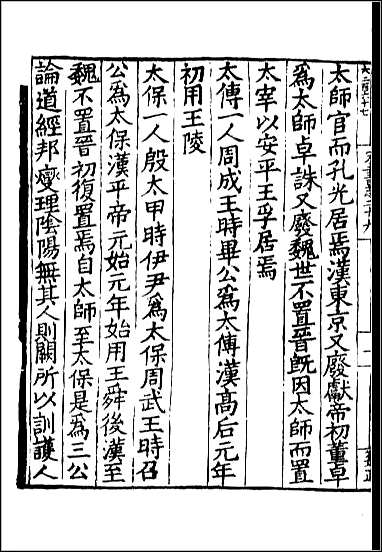 太師官而孔光居焉漢東京又廢獻帝初董卓
爲太師卓誅又廢魏世不置晉旣因太師而置
太宰以安平王孚居焉
太傅一人周成王時畢公爲太傅漢高后元年
初用王陵
太保一人殷太甲時伊尹爲太保周武王時召
公爲太保漢平帝元始元年始用王舜後漢至
魏不置晉初復置焉自太師至太保是爲三公
論道經邦燮理陰陽無其人則闕所以訓護人